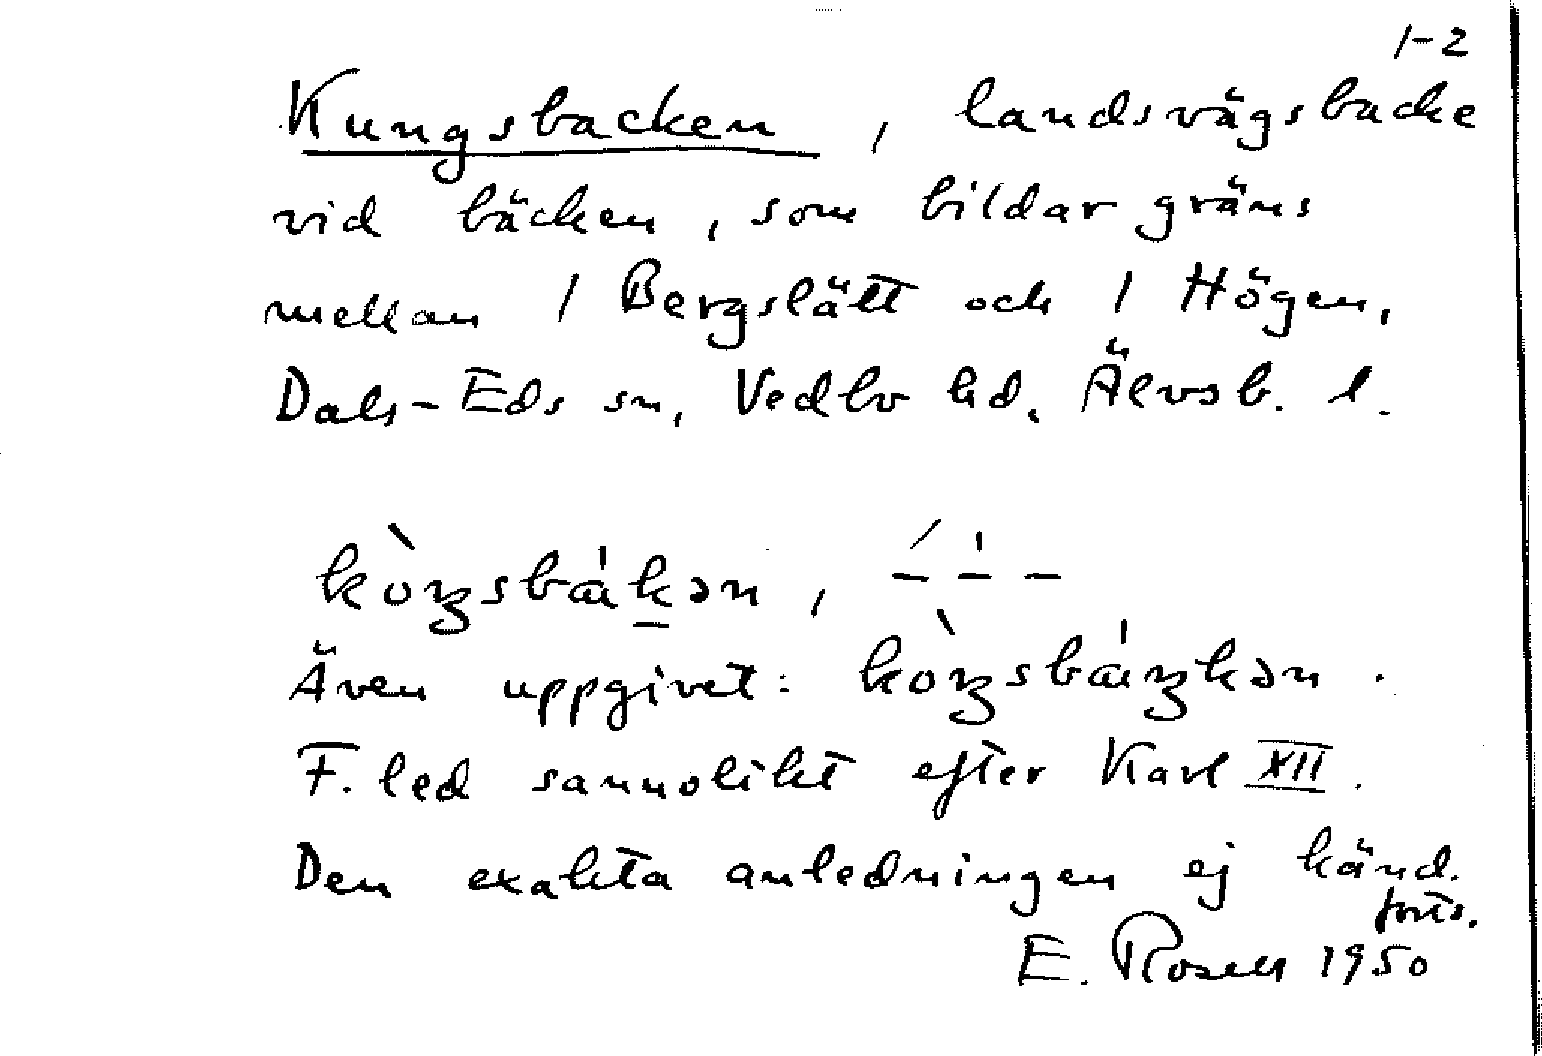 1-2
Kungsbacken, landsvägsbacke
vid bäcken, som bildar gräns
mellan 1 Bergslätt och 1 Högen,
Dals-Eds sn, Vedbo hd. Älvsb. l.
kòŋsbákən, – – –
Även uppgivet: kòŋsbáŋkən.
F. led sannolikt efter Karl XII.
Den exakta anledningen ej känd.
forts.
E. Rosell 1950